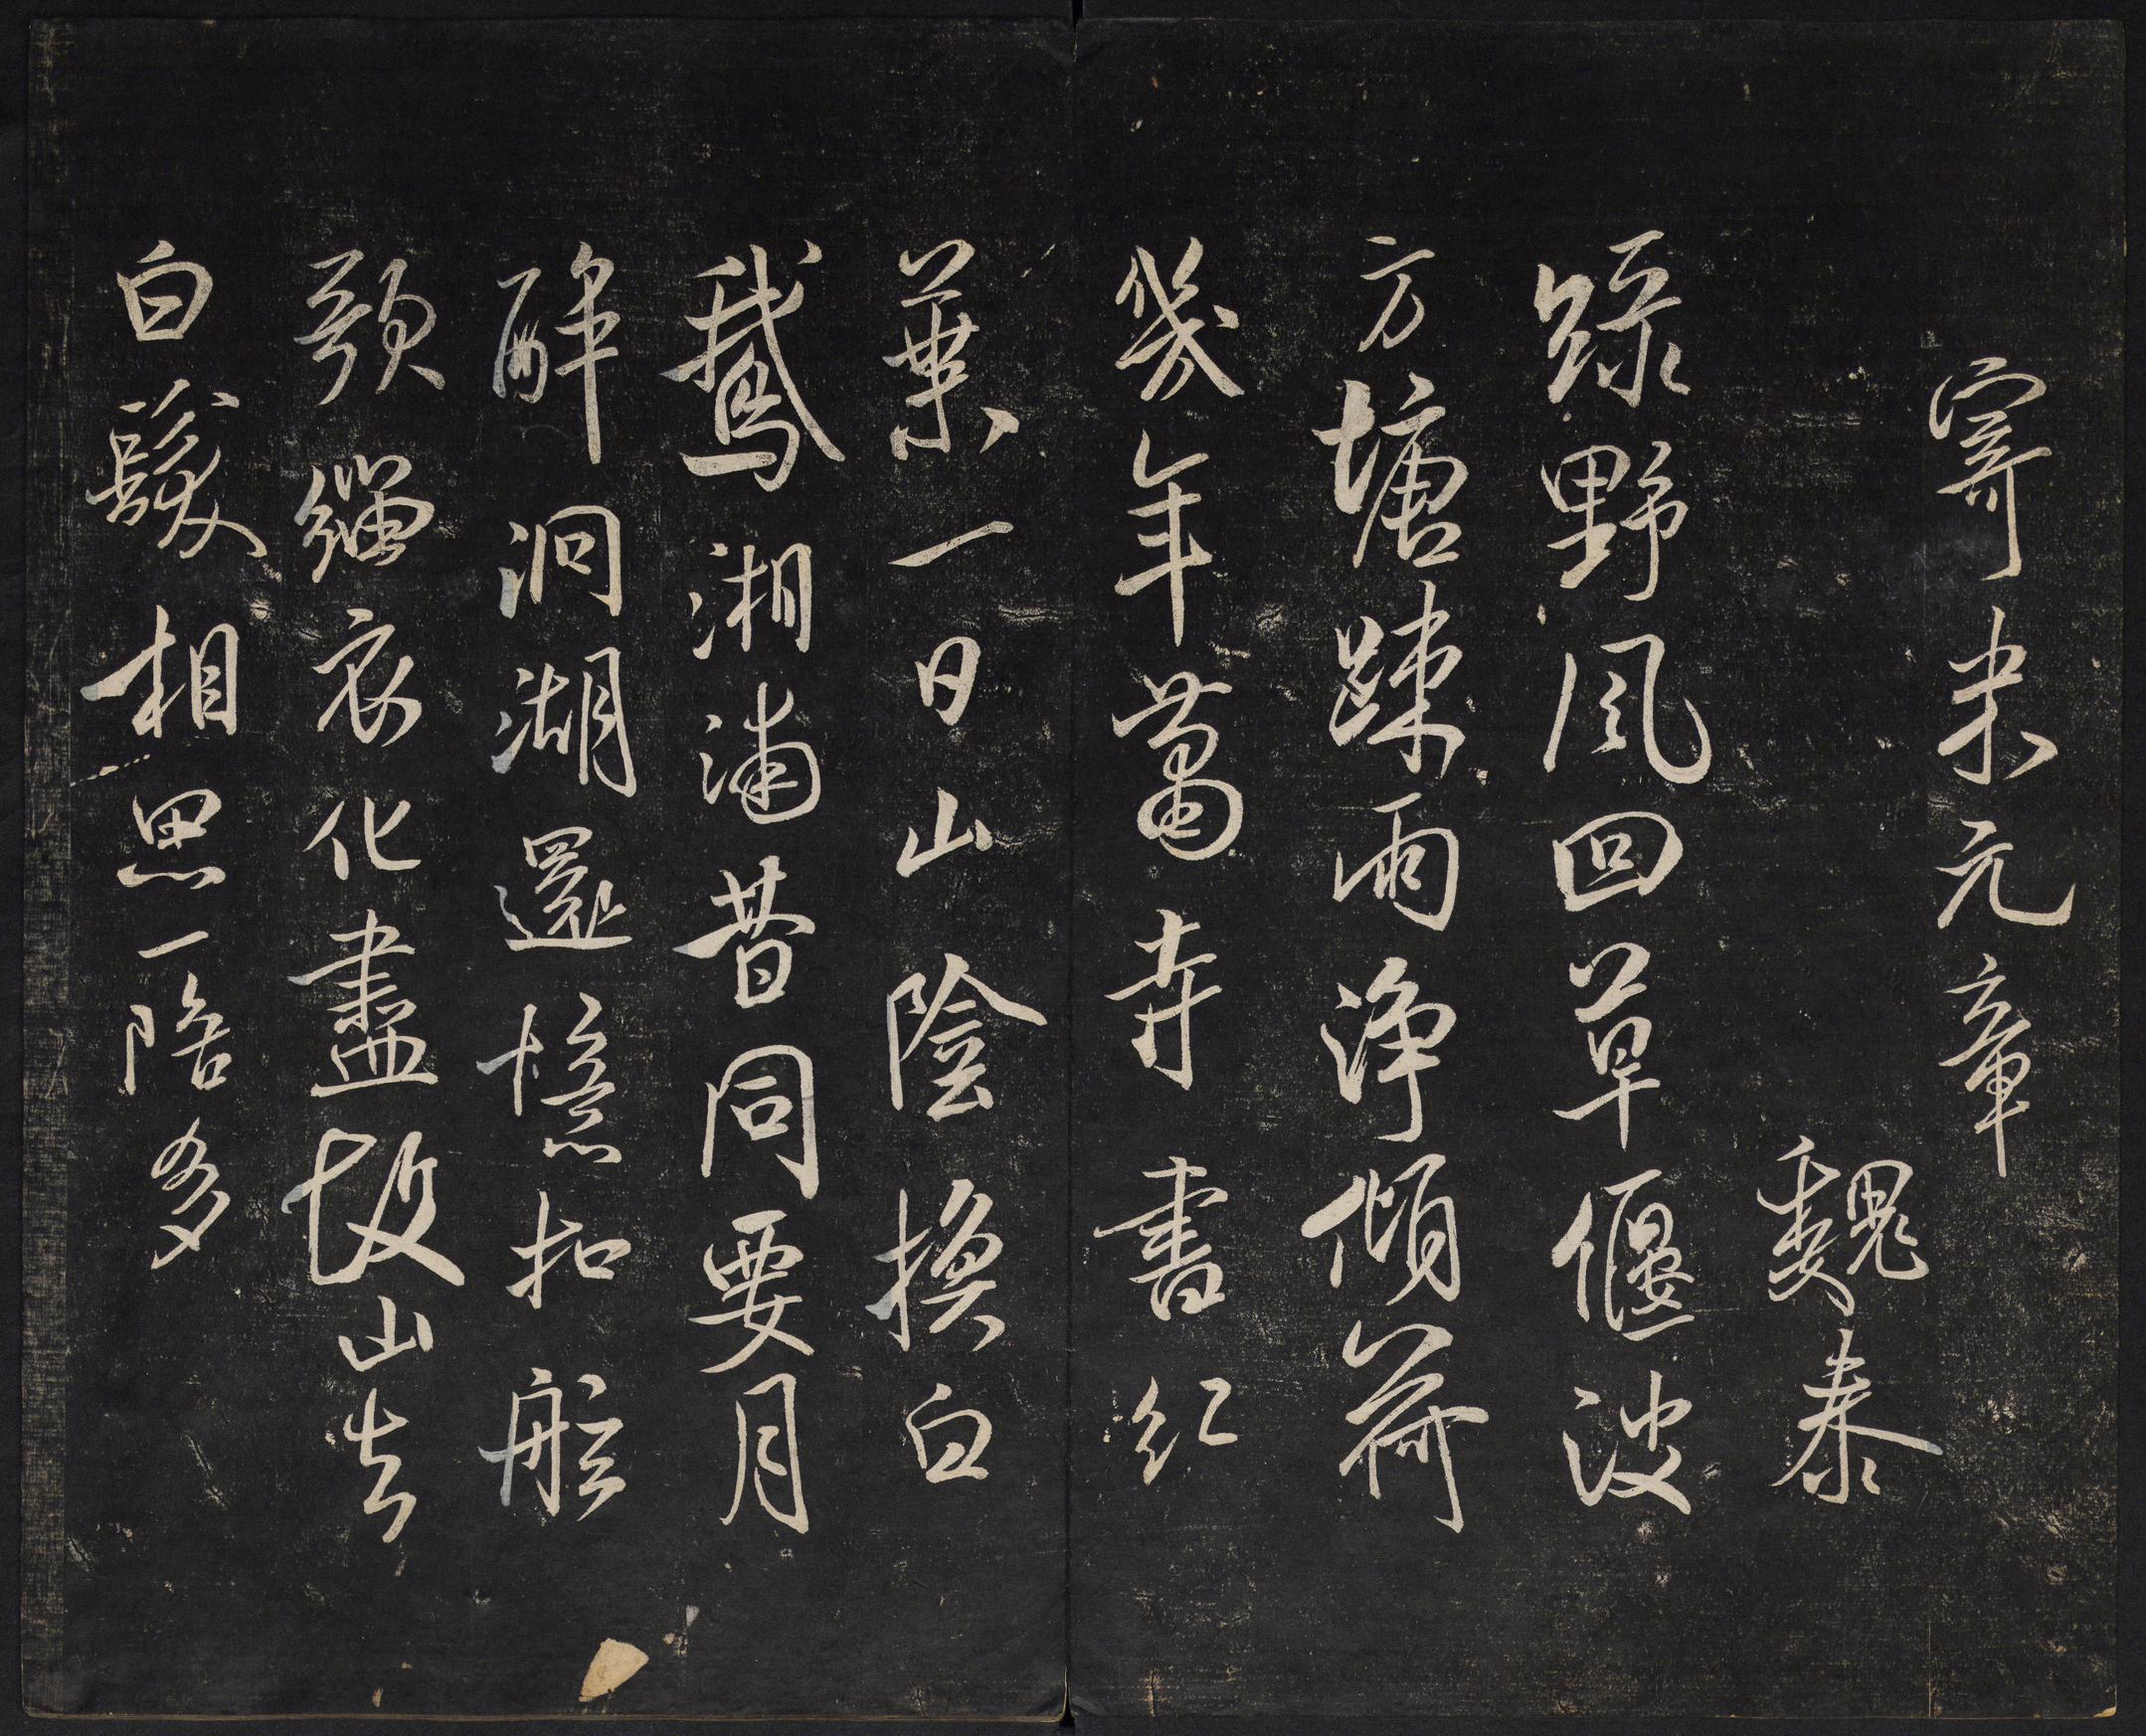 寄米元章
魏泰
綠野風回草偃波
方塘踈雨淨傾荷
幾年蕭寺書紅
葉一日山陰換白
鵝湘浦昔同要月
醉洞湖還憶扣舷
歌緇衣化盡故山去
白髮相思一陪多